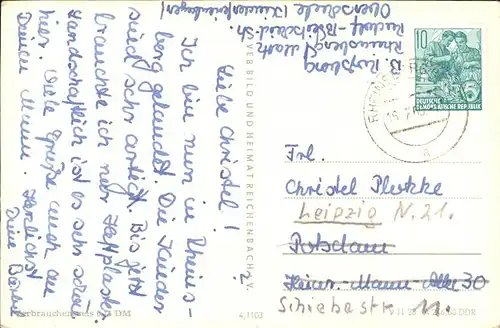 Liebe Christel!
Ich bin nun in Rheins-
berg gelandet. Die Kinder
sind sehr artig. Bis jetzt
brauchte ich nur Heftplaster.
Landschaftlich ist es sehr schön
hier. Viele Grüße auch an
Deinen Mann. Herzlichst
Deine
VEB BILD UND HEIMAT REICHENBACH i. V.
4/1103
DM
B.
Rheinsberg/Mark
Rudolf-Breitscheid-Str.
Oberschule (Kinderferienlager)
10
DEUTSCHE
DEMOKRATISCHE REPUBLIK
RHEINSBERG
a
Frl.
Christel Plutzke
Leipzig N. 21.
Potsdam
Heinr.-Mann-Allee 30
11.
DDR